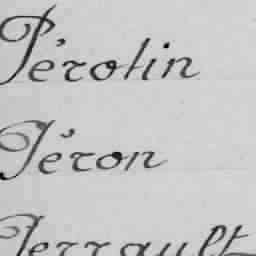 Pérolin
Péron
Perrault